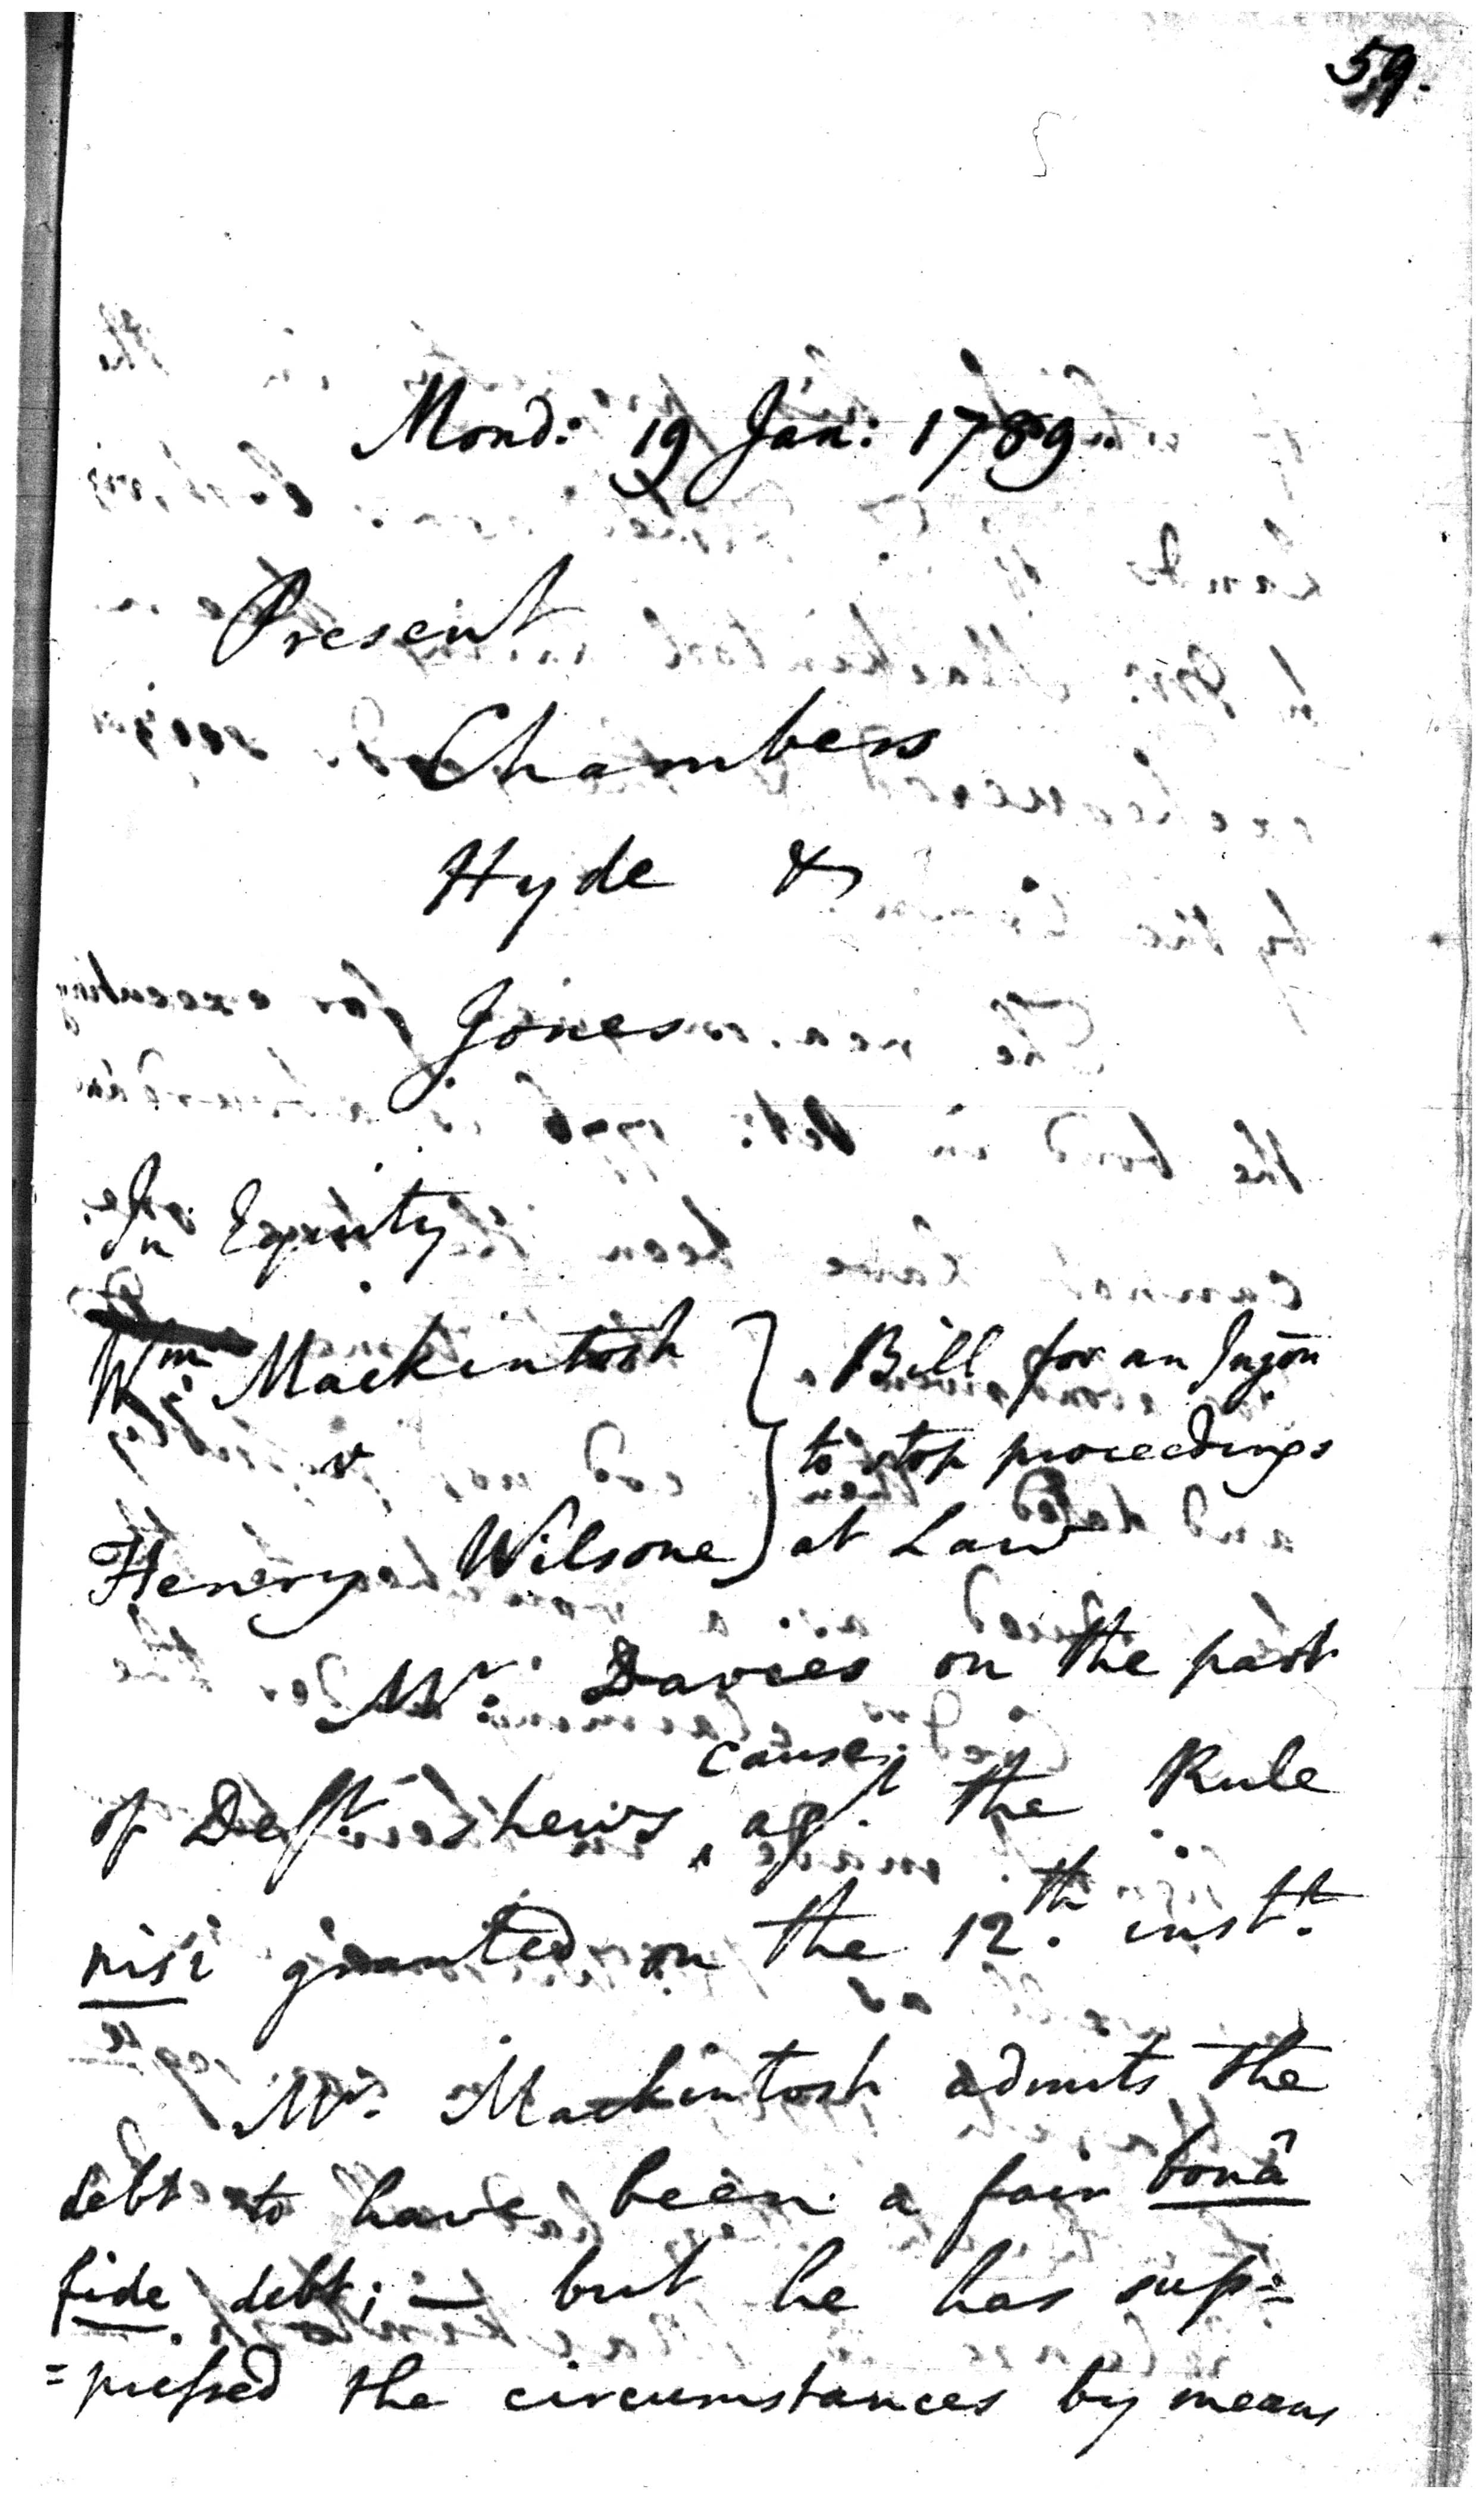 59.
Mond: 19 Jan: 1789.
Present
Chambers
Hyde &
Jones.
In Equity
Wm: Mackintosh } Bill for an Injōn
v } to stop proceedings
Henry Wilsone } at Law
Mr. Davies on the part
cause
of Deft. shews ‸ agt. the Rule
nisi granted on the 12.th instt.
Mr. Mackintosh admits the
debt to have been a fair bonâ
fide debt; — but he has sup=
=pressed the circumstances by means